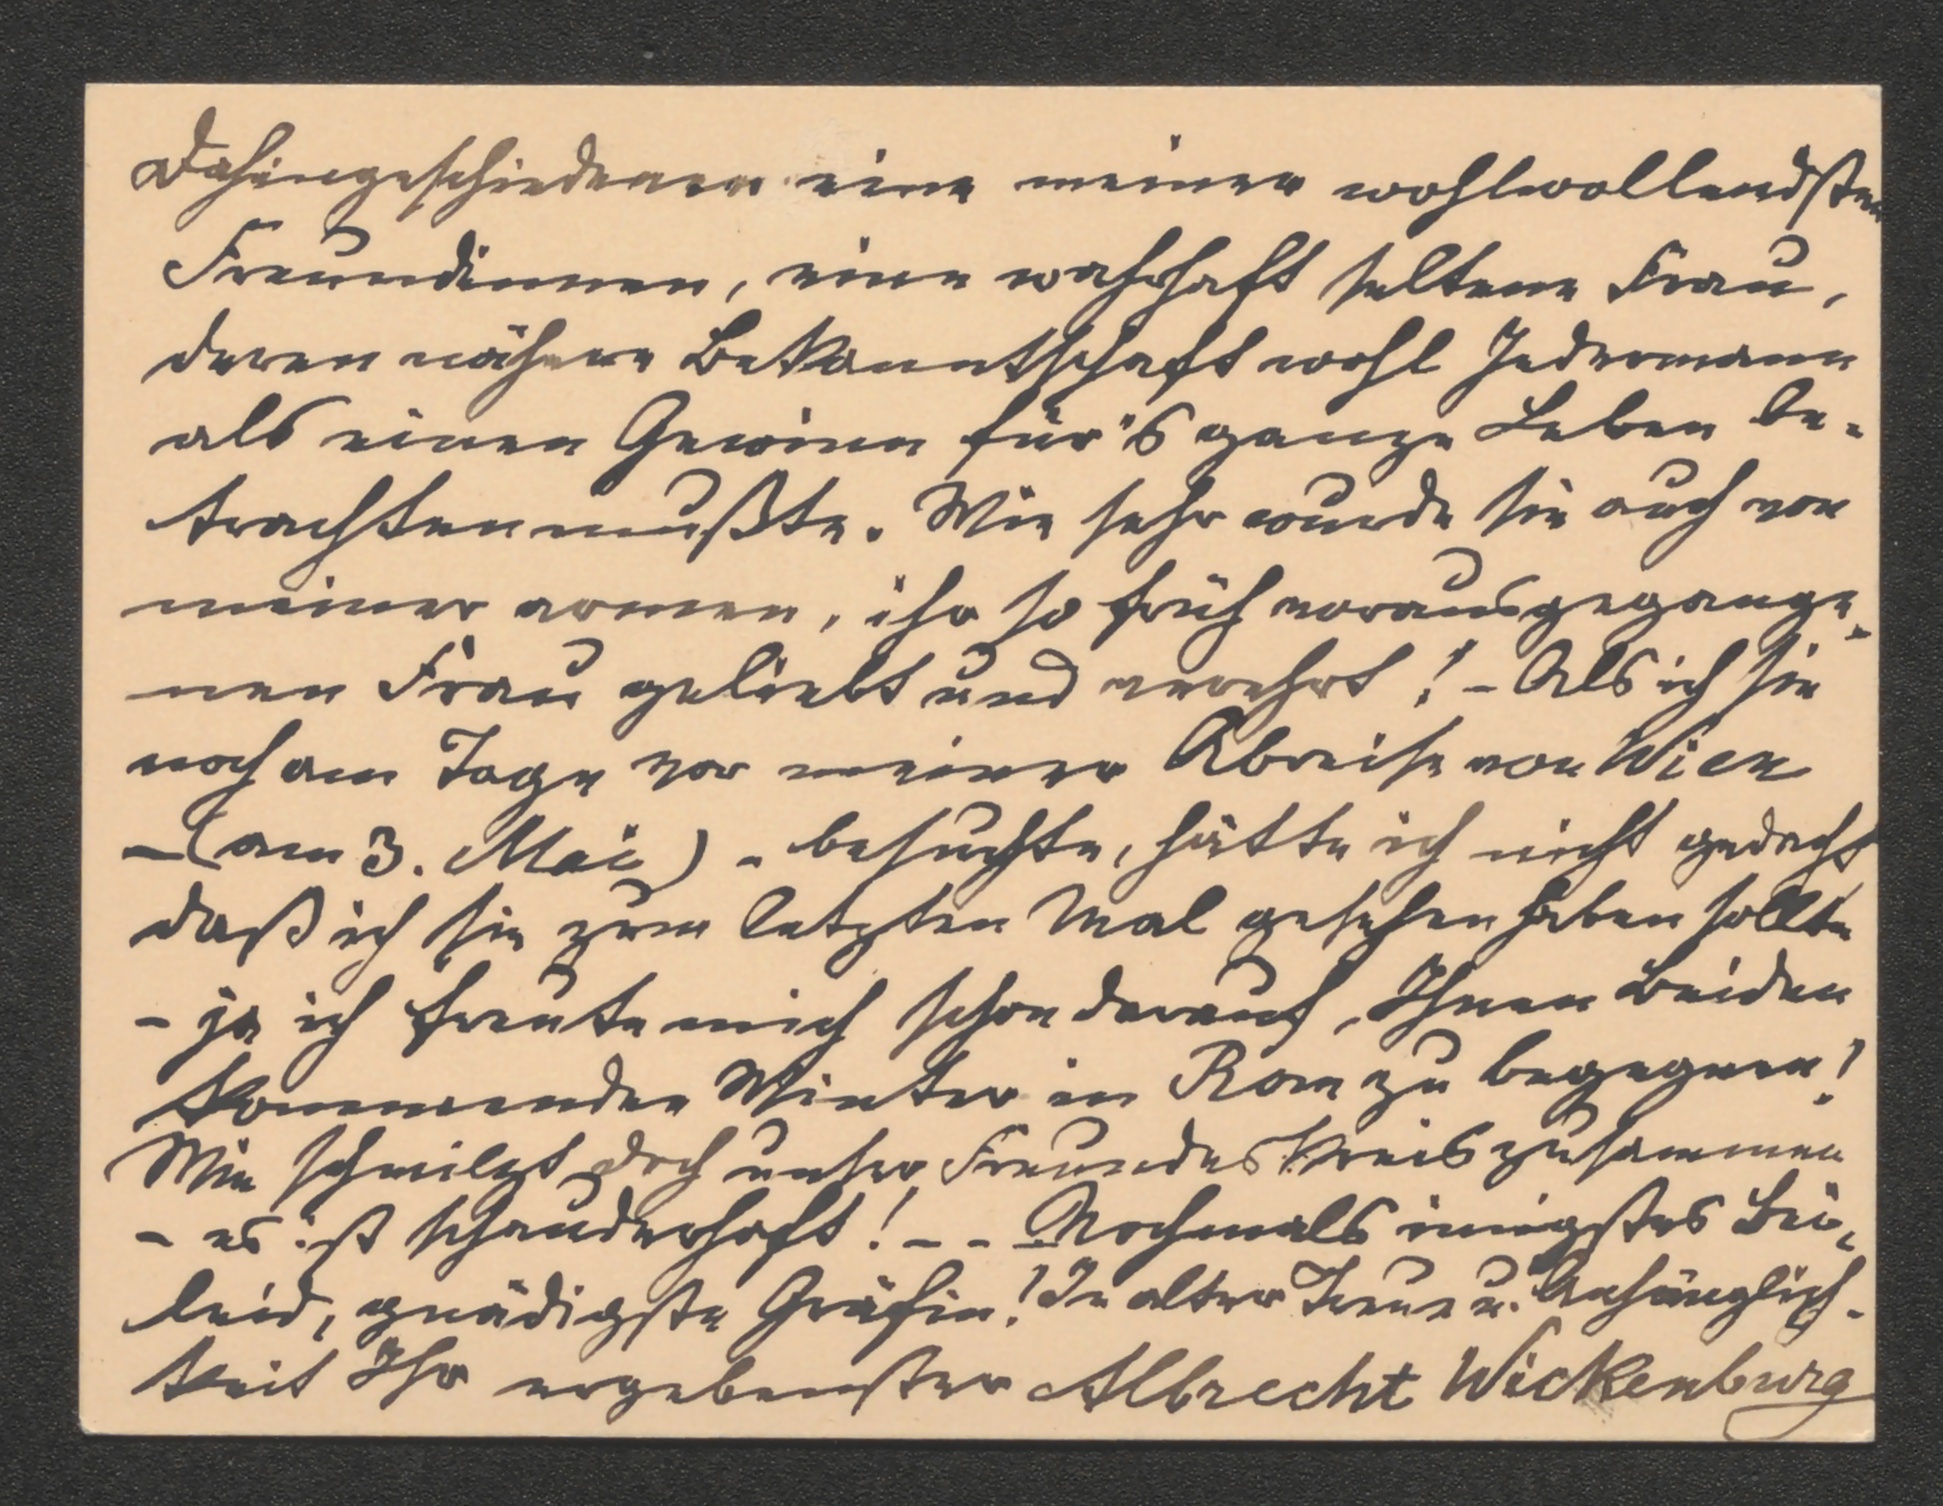 Dahingeschiedenen eine meiner wohlwollendsten
Freundinnen, eine wahrhaft seltene Frau,
deren nähere Bekanntschaft wohl Jedermann
als einen Gewinn für's ganze Leben be-
trachten mußte. Wie sehr wurde sie auch von
meiner armen, ihr so früh vorausgegange-
nen Frau geliebt und verehrt! - Als ich sie
noch am Tage vor meiner Abreise von Wien
- (am 3. Mai) - besuchte, hätte ich nicht gedacht
daß ich sie zum letzten Mal gesehen haben sollte
- ja ich freute mich schon darauf, Ihnen Beiden
kommenden Winter in Rom zu begegnen!
Wie schmilzt doch unser Freundeskreis zusammen
- es ist schauderhaft! - - Nochmals innigstes Bei-
leid, gnädigste Gräfin! In alter Treue u. Anhänglich-
keit Ihr ergebenster Albrecht Wickenburg